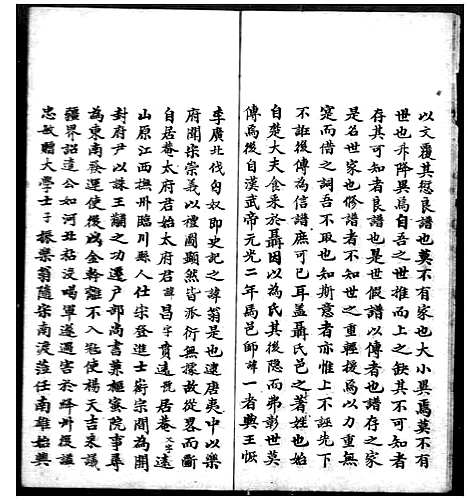 以文覆其愆良譜也莫不有家也大小異焉莫不有
世也升降異焉自吾之世推而上之缺其不可知者
存其可知者良譜也是世假譜以傳者也譜存之家
是名世家也修譜者不知世之重輕援焉以力重無
寔而借之詞吾不取也知斯意者亦惟上不誣先下
不誑後傳為信譜庶可已耳蓋聶氏邑之著姓也始
自楚大夫食采於聶因以為氏其後隱而弗彰世莫
傳焉後自漢武帝元光二年馬邑師諱一者與王恢
李廣北伐匈奴即史記之諱翁是也逮唐夷中以樂
府聞宋崇義以禮圖顯然皆派衍無據可得而斷
自居菴太府君始太府君諱昌字賁遠既居菴又字遠
山原江西撫州臨川縣人仕宋登進士徽宗閒為開
封府尹以誅王黼之功遷戶部尚書兼樞密院事尋
為東南發運使後咸金幹離不入寇使楊天吉來議
疆界詔遣公如河丑粘沒喝軍遂遇害於絳州後諡
忠敏贈大學士子振樂翁隨宗南渡蒞任南雄始興